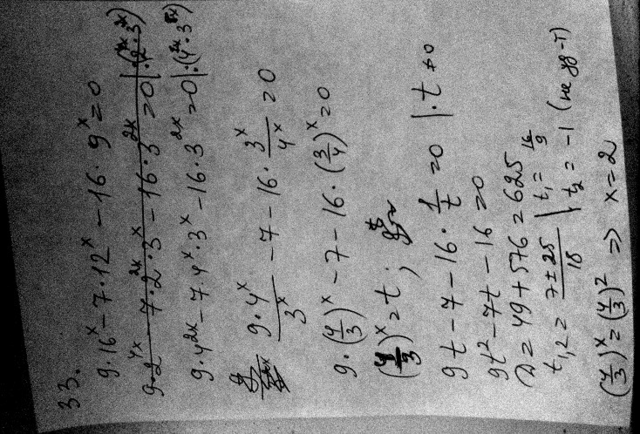 33.
9·16ˣ-7·12ˣ-16·9ˣ=0
9·4²ˣ-7·4ˣ·3ˣ-16·3²ˣ=0|:(4ˣ·3ˣ)
9·4ˣ/3ˣ-7-16·3ˣ/4ˣ=0
9·(4/3)ˣ-7-16·(3/4)ˣ=0
(4/3)ˣ=t;
9t-7-16·1/t=0 |·t≠0
9t²-7t-16=0
D=49+576=625
t₁,₂=7±25/18 | t₁=16/9
t₂=-1 (не уд-т)
(4/3)ˣ=(4/3)² => x=2